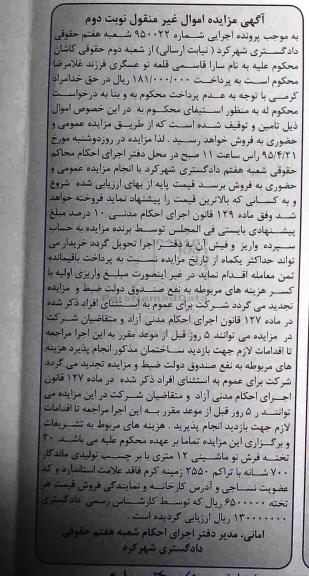 آگهی مزایده اموال غیر منقول نوبت دوم
به موجب پرونده اجرایی شماره ۹۵۰۰۲۲ شعبه هفتم حقوقی
دادگستری شهرکرد ( نیابت ارسالی) از شعبه دوم حقوقی کاشان
محکوم علیه به نام سارا قاسمی قلعه نو عسگری فرزند غلامرضا
محکوم است به پرداخت ۱۸۱/۰۰۰/۰۰۰ ریال در حق خدامراد
کرمی با توجه به عدم پرداخت محکوم به و بنا به درخواست
محکوم له به منظور استیفای محکوم به در این خصوص اموال
ذیل تامین و توقیف شده است که از طریق مزایده عمومی و
حضوری به فروش خواهد رسید . لذا مزایده در روزدوشنبه مورخ
۹۵/۴/۲۱ راس ساعت ۱۱ صبح در محل دفتر اجرای احکام محاکم
حقوقی شعبه هفتم دادگستری شهرکرد با انجام مزایده عمومی و
حضوری به فروش برسد قیمت پایه از بهای ارزیابی شده شروع
و به کسانی که بالاترین قیمت را پیشنهاد نماید فروخته خواهد
شد وفق ماده ۱۲۹ قانون اجرای احکام مدنی ۱۰ درصد مبلغ
پیشنهادی بایستی فی المجلس توسط برنده مزایده به حساب
سپرده واریز و فیش آن به دفتر اجرا تحویل گردد خریدار می
تواند حداکثر یکماه از تاریخ مزایده نسبت به پرداخت باقیمانده
ثمن معامله اقدام نماید در غیر اینصورت مبلغ واریزی اولیه با
کسر هزینه های مربوطه به نفع صندوق دولت ضبط و مزایده
تجدید می گردد شرکت برای عموم به استثنای افراد ذکر شده
در ماده ۱۲۷ قانون اجرای احکام مدنی آزاد و متقاضیان شرکت
در مزایده می توانند ۵ روز قبل از موعد مقرر به این اجرا مراجعه
تا اقدامات لازم جهت بازدید ساختمان مذکور انجام پذیرد هزینه
های مربوطه به نفع صندوق دولت ضبط و مزایده تجدید می گردد
شرکت برای عموم به استثنای افراد ذکر شده در ماده ۱۲۷ قانون
اجرای احکام مدنی آزاد و متقاضیان شرکت در این مزایده می
توانند ر ۵ روز قبل از موعد مقرر به این اجرا مراجعه تا اقدامات
لازم جهت بازدید انجام پذیرد . هزینه های مربوط به تشریفات
و برگزاری این مزایده تماما بر عهده محکوم علیه می باشد. ۲۰
تخته فرش نو ماشینی ۱۲ متری با بر چسب تولیدی ماندگار
۷۰۰ شانه با تراکم ۲۵۵۰ زمینه کرم فاقد علامت استاندارد و کد
عضویت نساجی و آدرس کارخانه و نمایندگی فروش قیمت هر
تخته ۶۵۰۰۰۰۰ ریال که توسط کارشناس رسمی دادگستری
۱۳۰۰۰۰۰۰۰ ریال ارزیابی گردیده است .
امانی، مدیر دفتر اجرای احکام شعبه هفتم حقوقی
دادگستری شهرکرد